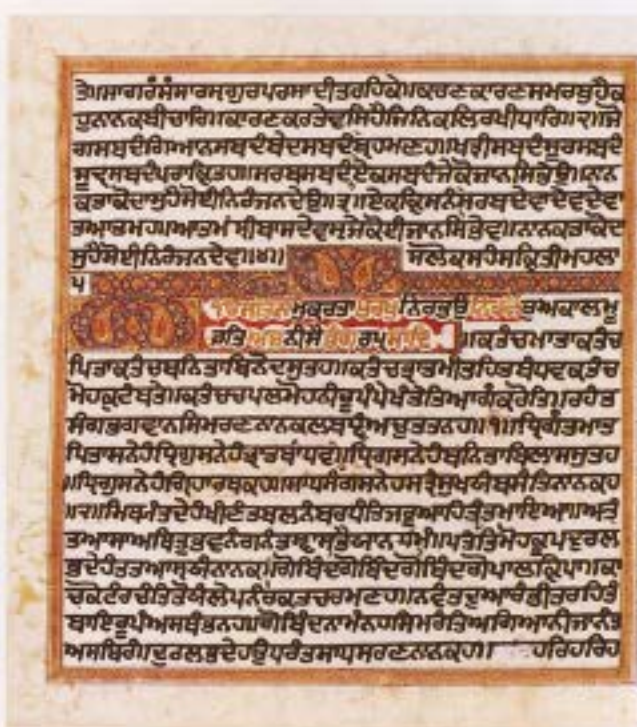 ਤੇ॥ਸਾਗਰੰਸੰਸਾਰਸਗੁਰਪਰਸਾਦੀਤਰਹਿਕੇ॥ਕਰਣਕਾਰਣਸਮਰਥੁਹੈਕ
ਹੁਨਾਨਕਬੀਚਾਰਿ॥ਕਾਰਣਕਰਤੇਵਸਿਹੈਜਿਨਿਕਲਿਰਖੀਧਾਰਿ॥੨॥ਜੋ
ਗਸਬਦੰਗਿਆਨਸਬਦੰਬੇਦਸਬਦੰਬ੍ਰਹਮਣਹ॥ਖਤ੍ਰੀਸਬਦੰਸੂਰਸਬਦੰ
ਸੂਦ੍ਰਸਬਦੰਪਰਾਕ੍ਰਿਤਹ॥ਸਰਬਸਬਦੰਏਕਸਬਦੰਜੇਕੋਜਾਨਸਿਭੇਉ॥ਨਾਨ
ਕਤਾਕੋਦਾਸੁਹੈਸੋਈਨਿਰੰਜਨਦੇਉ॥੩॥ਏਕਕ੍ਰਿਸਨੰਸਰਬਦੇਵਾਦੇਵਦੇਵਾ
ਤਆਤਮਹ॥ਆਤਮੰਸ੍ਰੀਬਾਸਦੇਵਸ੍ਯਜੇਕੋਈਜਾਨਸਿਭੇਵ॥ਨਾਨਕਤਾਕੋਦਾ
ਸੁਹੈਸੋਈਨਿਰੰਜਨਦੇਵ॥੪॥ ਸਲੋਕਸਹਸਕ੍ਰਿਤੀਮਹਲਾ
੫
ੴਸਤਿਨਾਮੁਕਰਤਾਪੁਰਖੁਨਿਰਭਉਨਿਰਵੈਰੁਅਕਾਲਮੂ
ਰਤਿਅਜੂਨੀਸੈਭੰਗੁਰਪ੍ਰਸਾਦਿ॥ਕਤੰਚਮਾਤਾਕਤੰਚ
ਪਿਤਾਕਤੰਚਬਨਿਤਾਬਿਨੋਦਸੁਤਹ॥ਕਤੰਚਭ੍ਰਾਤਮੀਤਹਿਤਬੰਧਵਕਤੰਚ
ਮੋਹਕੁਟੰਬਤੇ॥ਕਤੰਚਚਪਲਮੋਹਨੀਰੂਪੰਪੇਖੰਤੇਤਿਆਗੰਕਰੋਤਿ॥ਰਹੰਤ
ਸੰਗਭਗਵਾਨਸਿਮਰਣਨਾਨਕਲਬਧ੍ਯੰਅਚੁਤਤਨਹ॥੧॥ਧ੍ਰਿਗੰਤਮਾਤ
ਪਿਤਾਸਨੇਹੰਧ੍ਰਿਗਸਨੇਹੰਭ੍ਰਾਤਬਾਂਧਵਹ॥ਧ੍ਰਿਗਸਨੇਹੰਬਨਿਤਾਬਿਲਾਸਸੁਤਹ
॥ਧ੍ਰਿਗਸਨੇਹੰਗ੍ਰਿਹਾਰਥਕਹ॥ਸਾਧਸੰਗਸਨੇਹਸਤ੍ਯੰਸੁਖਯੰਬਸੰਤਿਨਾਨਕਹ
॥੨॥ਮਿਥ੍ਯੰਤਦੇਹੰਖੀਣੰਤਬਲਨੰਬਰਧੰਤਿਜਰੂਆਹਿਤ੍ਯੰਤਮਾਇਆ॥ਅਤ੍ਯੰ
ਤਆਸਾਅਥਿਤ੍ਯਭਵਨੰਗਨੰਤਸ੍ਵਾਸਾਭੈਯਾਨਧਰਮੰ॥ਪਤੰਤਿਮੋਹਕੂਪਦੁਰਲ
ਭਦੇਹੰਤਤਆਸ੍ਰਯੰਨਾਨਕ॥ਗੋਬਿੰਦਗੋਬਿੰਦਗੋਬਿੰਦਗੋਪਾਲਕ੍ਰਿਪਾ॥੩॥ਕਾ
ਚਕੋਟੰਰਚੰਤਿਤੋਯੰਲੇਪਨੰਰਕਤਚਰਮਣਹ॥ਨਵੰਤਦੁਆਰੰਭੀਤਰਹਿਤੰ
ਬਾਇਰੂਪੰਅਸਥੰਭਨਹ॥ਗੋਬਿੰਦਨਾਮੰਨਹਸਿਮਰੰਤਿਅਗਿਆਨੀਜਾਨੰਤ
ਅਸਥਿਰੰ॥ਦੁਰਲਭਦੇਹਉਧਰੰਤਸਾਧਸਰਣਨਾਨਕਹ॥ ਹਰਿਹਰਿਹ